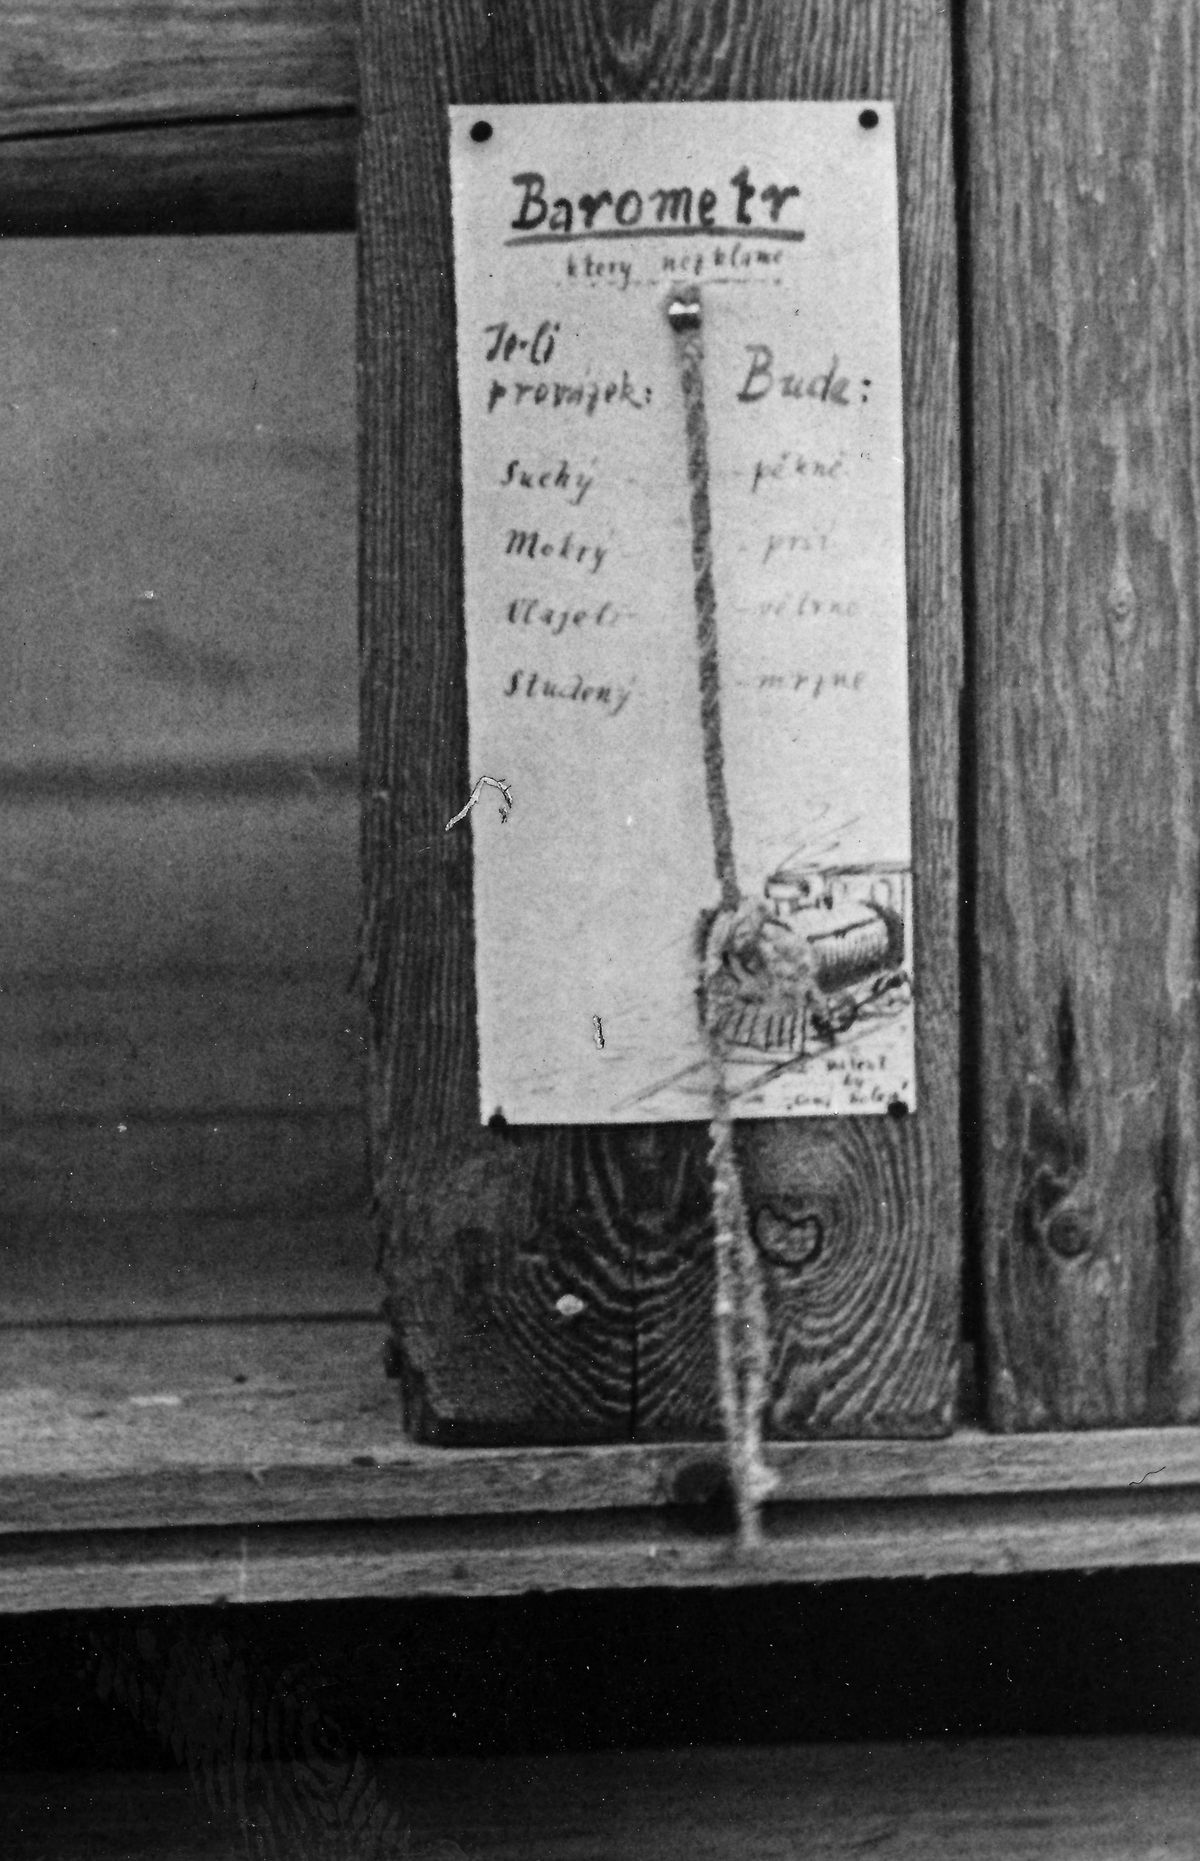 Barometr
který nezklame
Je-li
provázek:
Bude:
Suchý - - pěkně
Mokrý - - prší
Vlaje-li - - větrno
Studený - - mrzne
patent
by